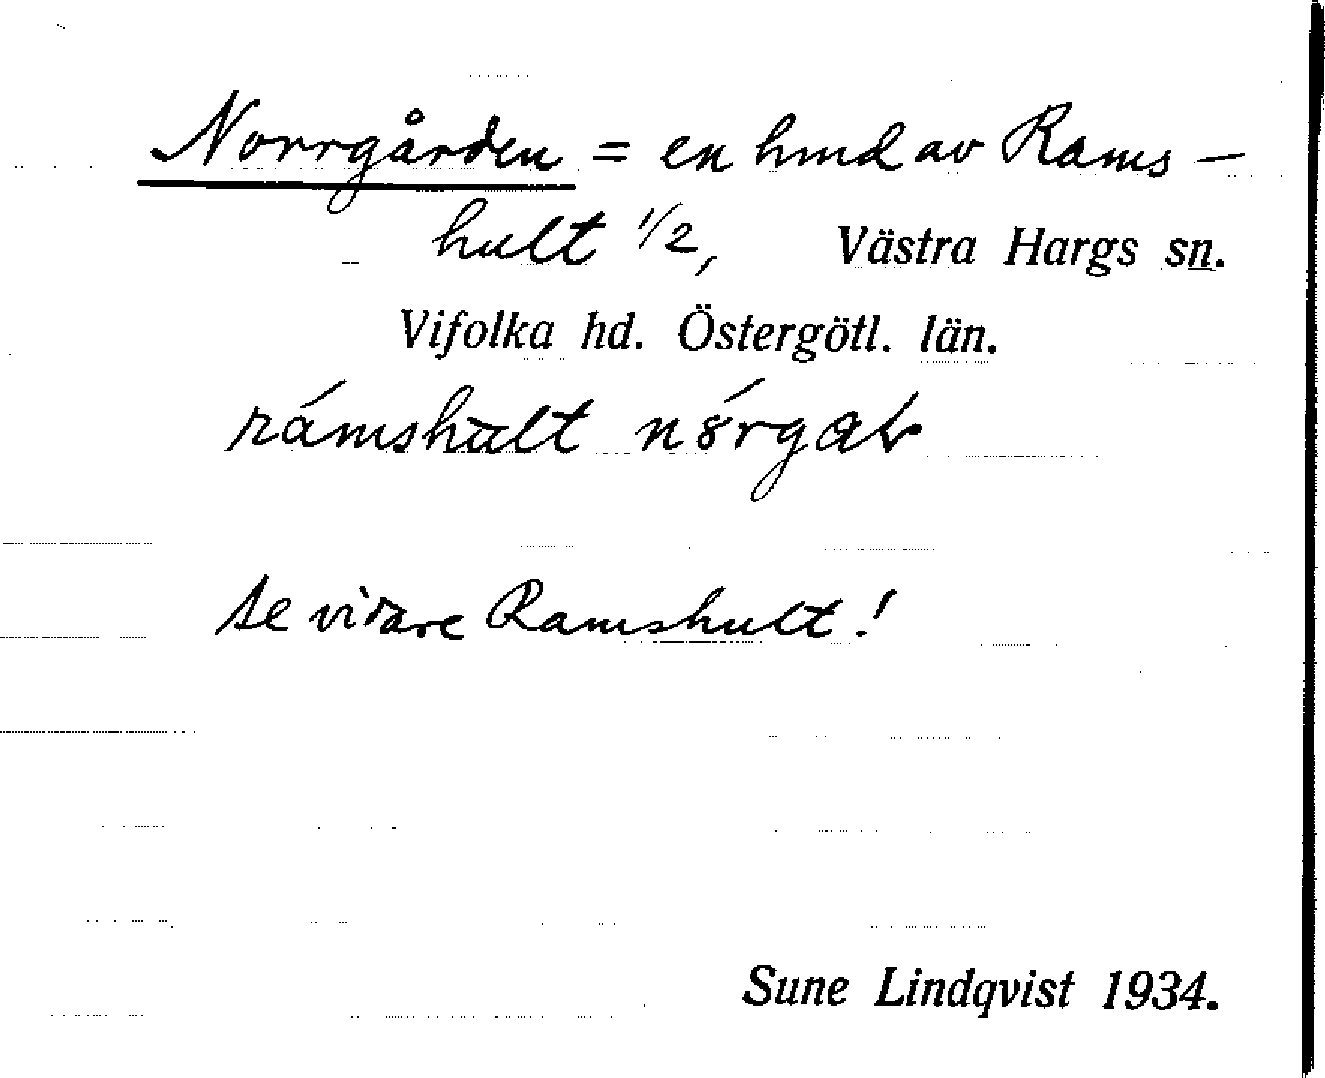 Norrgården = en hmd av Rams-
hult 1/2, Västra Hargs sn.
Vifolka hd. Östergötl. län.
rámshult
se vidare Ramshult!
Sune Lindqvist 1934.